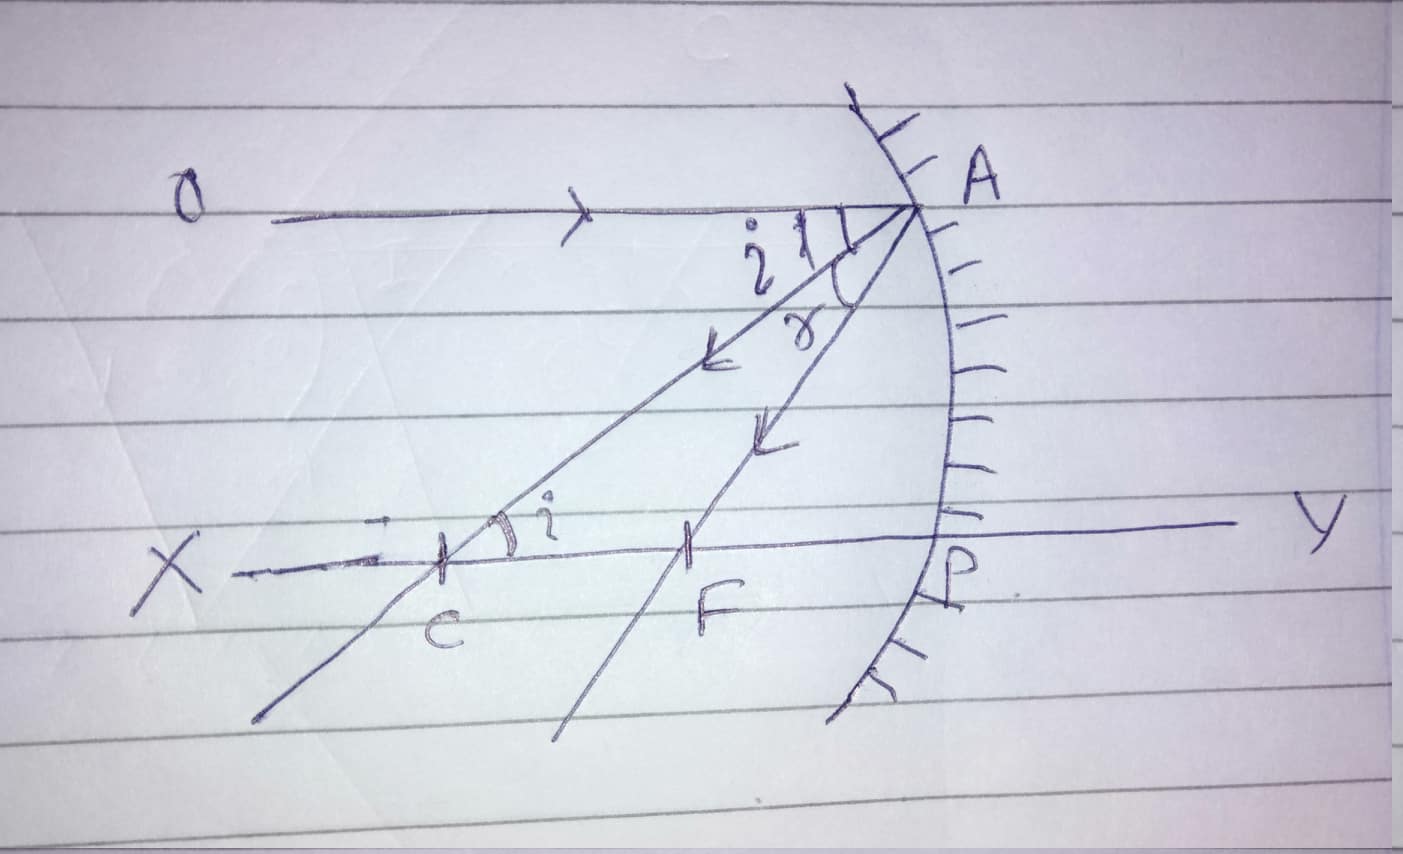 O
A
i
r
i
X
Y
C
F
P